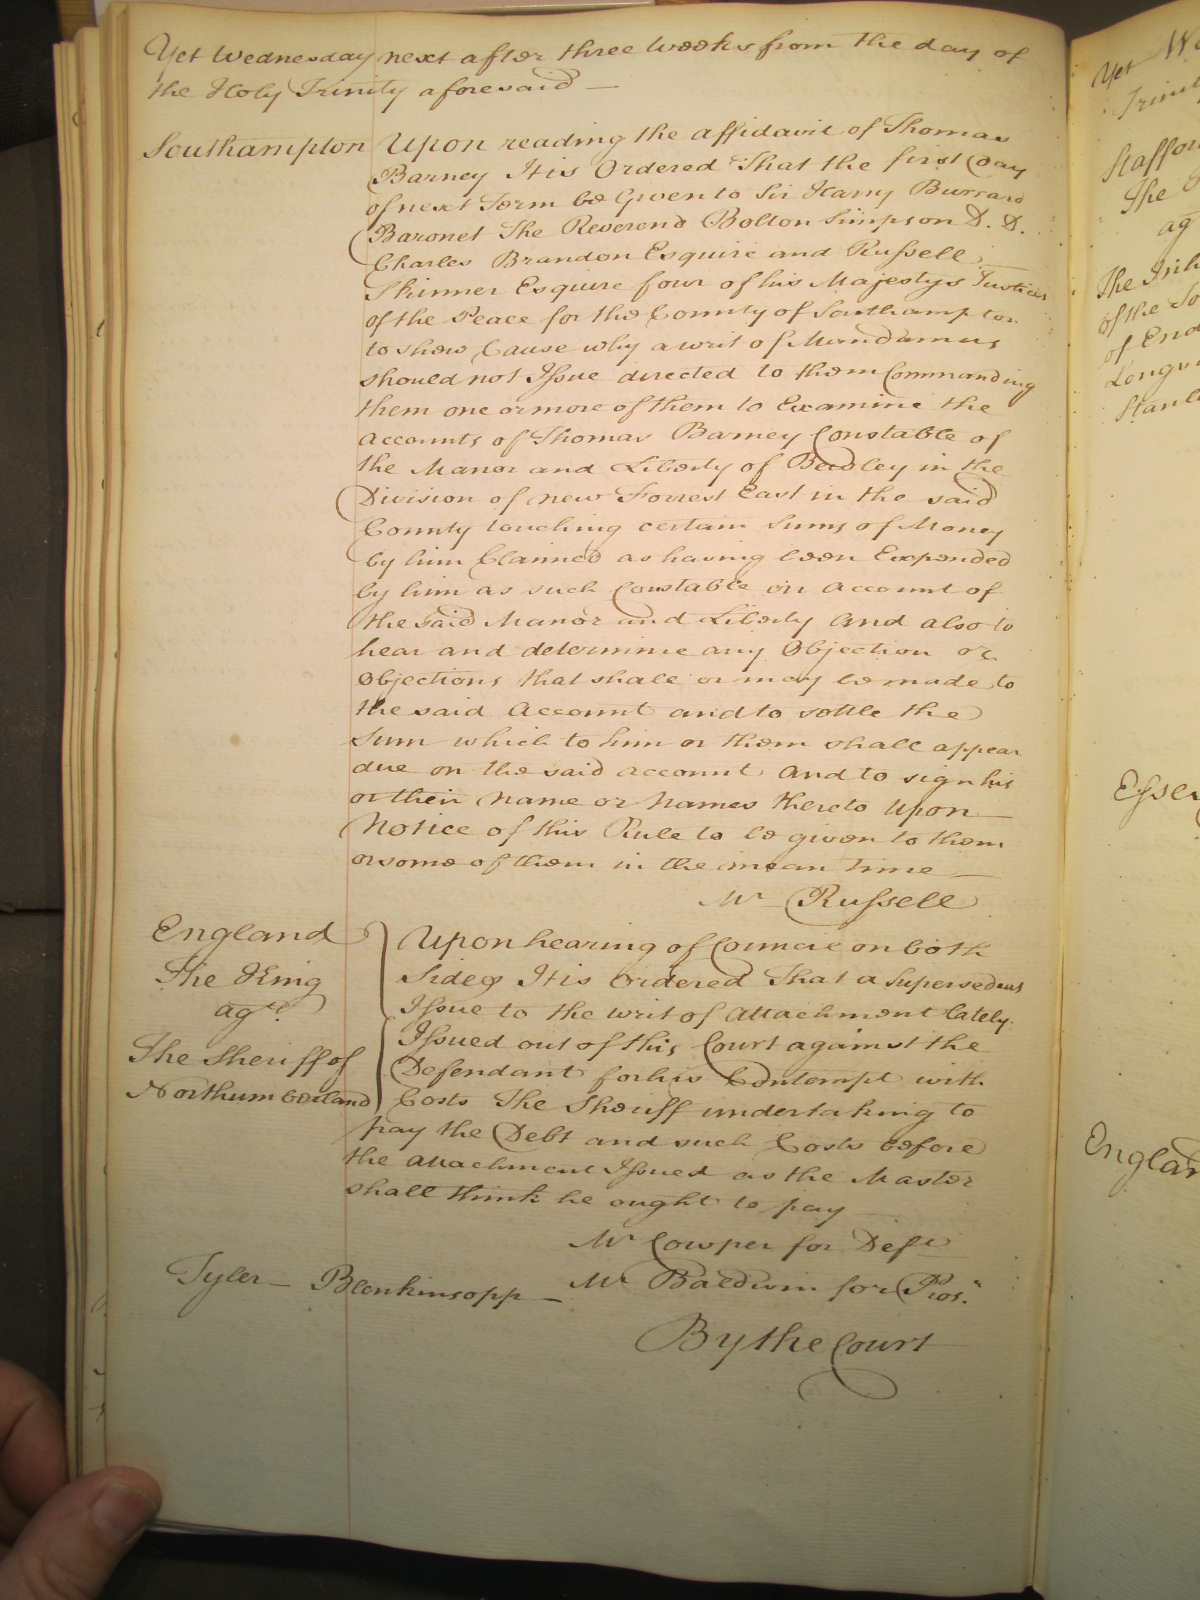 Yet Wednesday next after three Weeks from the day of
the Holy Trinity aforesaid —
Southampton Upon reading the affidavit of Thomas
Barney It is Ordered That the first Day
of next Term be Given to Sir Harry Burrard
Baronet The Reverend Bolton Simpson D. D.
Charles Brandon Esquire and Russell
Skinner Esquire four of his Majestys Justices
of the Peace for the County of Southampton
to shew Cause why a writ of Mandamus
should not Issue directed to them Commanding
them one or more of them to Examine the
accounts of Thomas Barney Constable of
the Manor and Liberty of Beudley in the
Division of new Forrest East in the said
County touching certain Sums of Money
by him Claimed as having been Expended
by him as such Constable on account of
the said Manor and Liberty And also to
hear and determine any Objection or
Objections that shall or may be made to
the said Account and to settle the
Sum which to him or them shall appear
due on the said account And to sign his
or their Name or Names thereto Upon —
Notice of this Rule to be given to them
or some of them in the mean time —
Mr Russell
England
The King
agt.
The Sheriff of
Northumberland
Upon hearing of Councel on both
Sides It is Ordered That a Supersedeas
Issue to the writ of attachment lately
Issued out of this Court against the
Defendant for his Contempt with
Costs The Sheriff undertaking to
pay the Debt and such Costs before
the attachment Issued as the Master
shall think he ought to pay
Mr Cowper for Deft
Tyler — Blenkinsopp — Mr Baldwin for Pros.
By the Court
Yet We
Trinit
Staffor
The
ag
The Inh
of the To
of End
Longv
Stanl
Essex
Englan